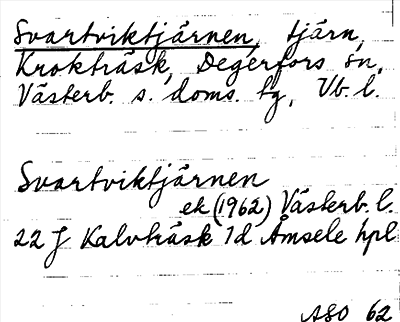 Svartviktjärnen, tjärn,
Kroktråsk, Degerfors sn,
Västerb. s. doms. tg, Vb. l.
Svartviktjärnen
ek (1962) Västerb. l.
22 J Kalvträsk 1d Åmsele hpl
ASO 62